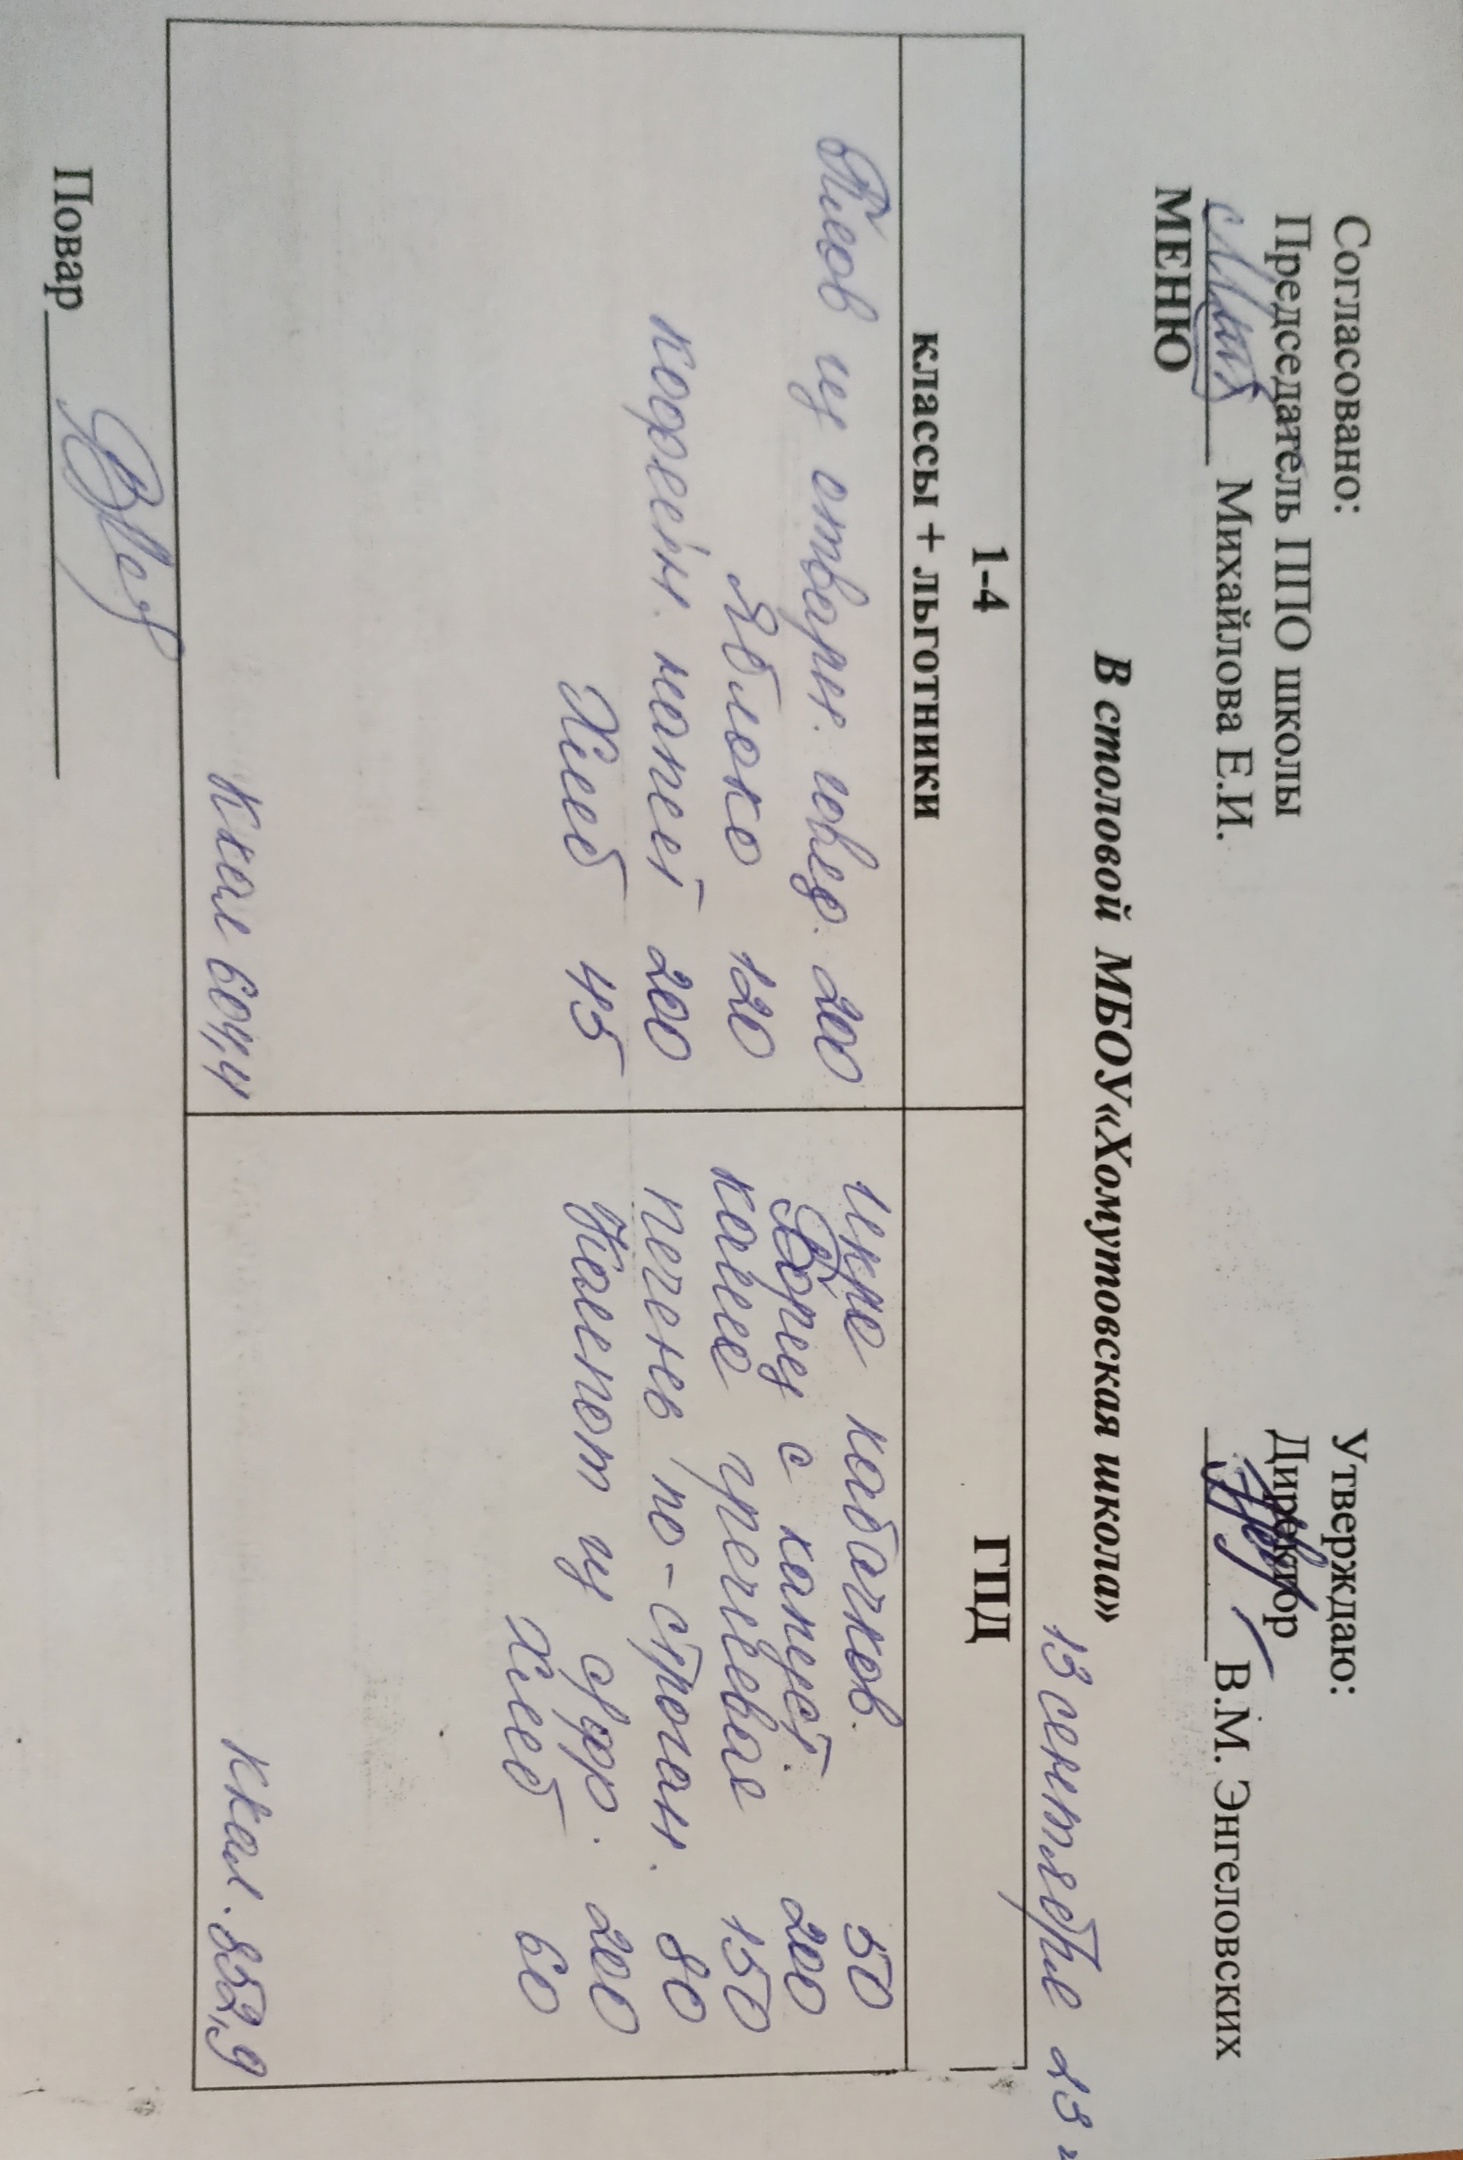 Согласовано:
Утверждаю:
Председатель ППО школы
Директор
Михайлова Е.И.
В.М. Энгеловских
МЕНЮ
В столовой МБОУ«Хомутовская школа»
13 сентября 23 г
1-4
классы + льготники
ГПД
Плов из отварн. говяд. 200
Яблоко 120
кофейн. напит 200
Хлеб 45
Ккал 604,4
Икра кабачков. 50
Борщ с капуст. 200
каша гречневая 150
печень по-строган. 80
Компот из сухофр. 200
Хлеб 60
Ккал. 852,9
Повар